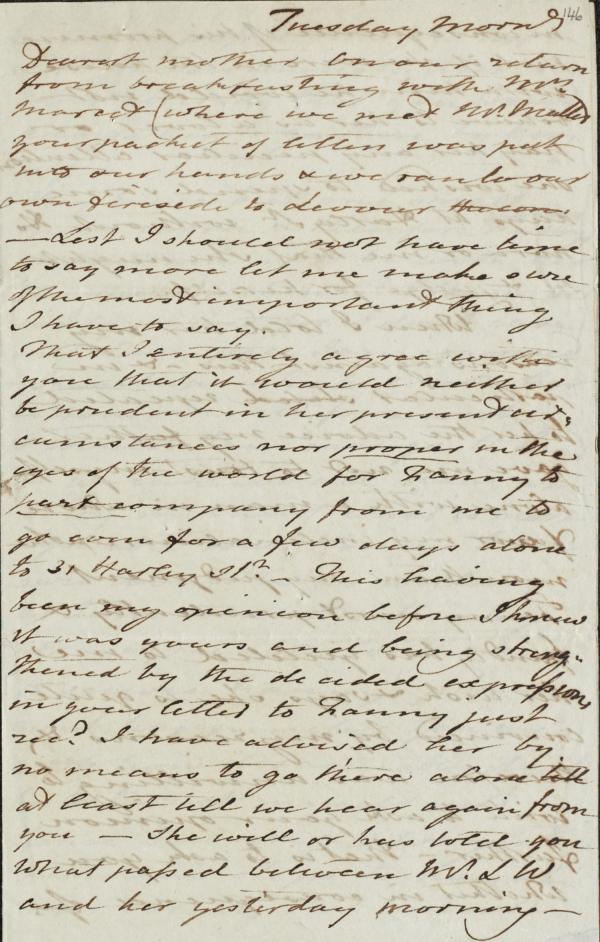 146
Tuesday Morng
Dearest mother On our return
from breakfasting with Mrs.
Marcet (where we met Mr. Mallet
your packet of letters was put
into our hands & we ran to our
own fireside to devour
— Lest I should not have time
to say more let me make sure
of the most important thing
I have to say.
That I entirely agree with
you that it would neither
be prudent in her present cir=
cumstances nor proper in the
eyes of the world for Fanny to
part company from me to
go even for a few days alone
to 31 Harley Stt. — This having
been my opinion before I knew
it was yours and being streng=
thened by the decided expressions
in your letter to Fanny just
recd. I have advised her by
no means to go there alone till
at least till we hear again from
you — She will or has told you
what passed between Mr. L W
and her yesterday morning —